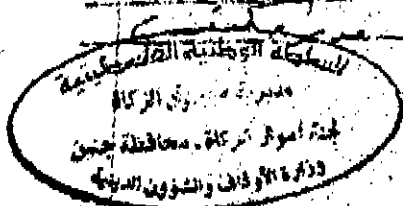 السلطة الوطنية الفلسطينية
مديرية صندوق الزكاة
لجنة اموال الزكاة - محافظة جنين
وزارة الأوقاف والشؤون الدينية